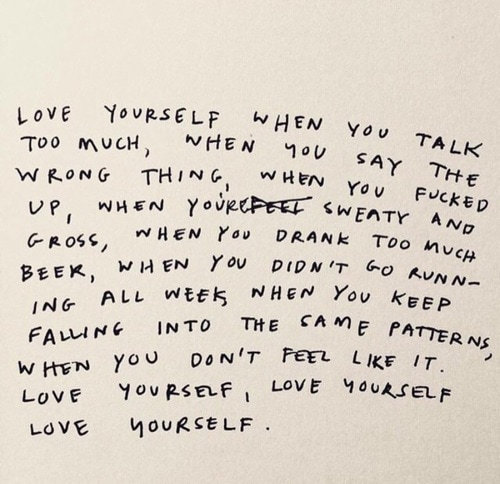 LOVE YOURSELF WHEN YOU TALK
TOO MUCH, WHEN YOU SAY THE
WRONG THING, WHEN YOU FUCKED
UP, WHEN YOU'RE FEEL SWEATY AND
GROSS, WHEN YOU DRANK TOO MUCH
BEER, WHEN YOU DIDN'T GO RUNN-
ING ALL WEEK WHEN YOU KEEP
FALLING INTO THE SAME PATTERNS,
WHEN YOU DON'T FEEL LIKE IT.
LOVE YOURSELF, LOVE YOURSELF
LOVE YOURSELF.